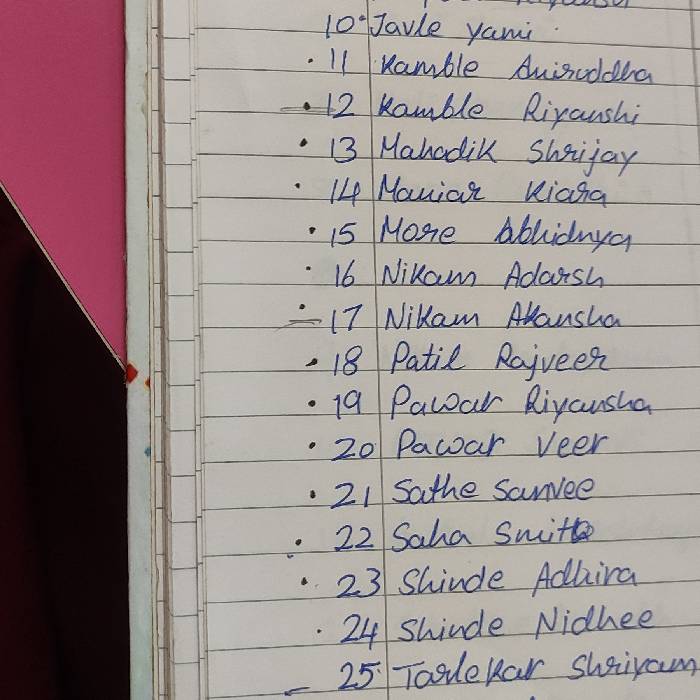 10 Javle yami
11 Kamble Aniruddha
12 Kamble Riyanshi
13 Mahadik Shrijay
14 Maniar Kiara
15 More Abhidnya
16 Nikam Adarsh
17 Nikam Akansha
18 Patil Rajveer
19 Pawar Riyansha
20 Pawar Veer
21 Sathe Sanvee
22 Saha Smit
23 Shinde Adhira
24 Shinde Nidhee
25 Tarlekar Shrivam